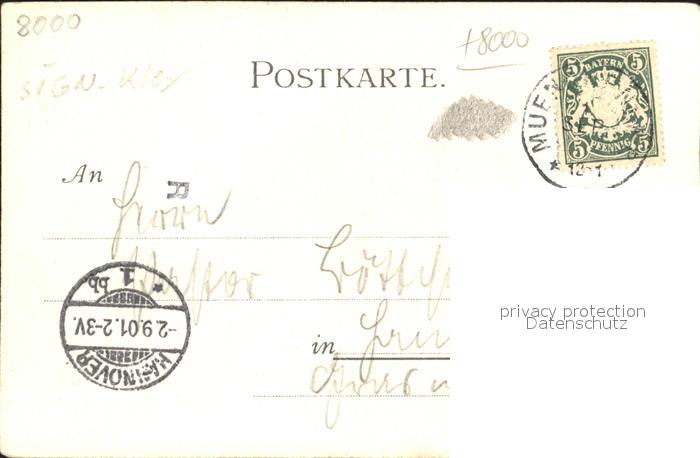 8000
+8000
SIGN. Kley
POSTKARTE.
5 BAYERN 5
5 PFENNIG 5
MUEN
SEP
12-1
An
R
Herrn
Pastor Böttch
in Han
HANNOVER
-2.9.01.2-3V.
* 1. bb.
privacy protection
Datenschutz